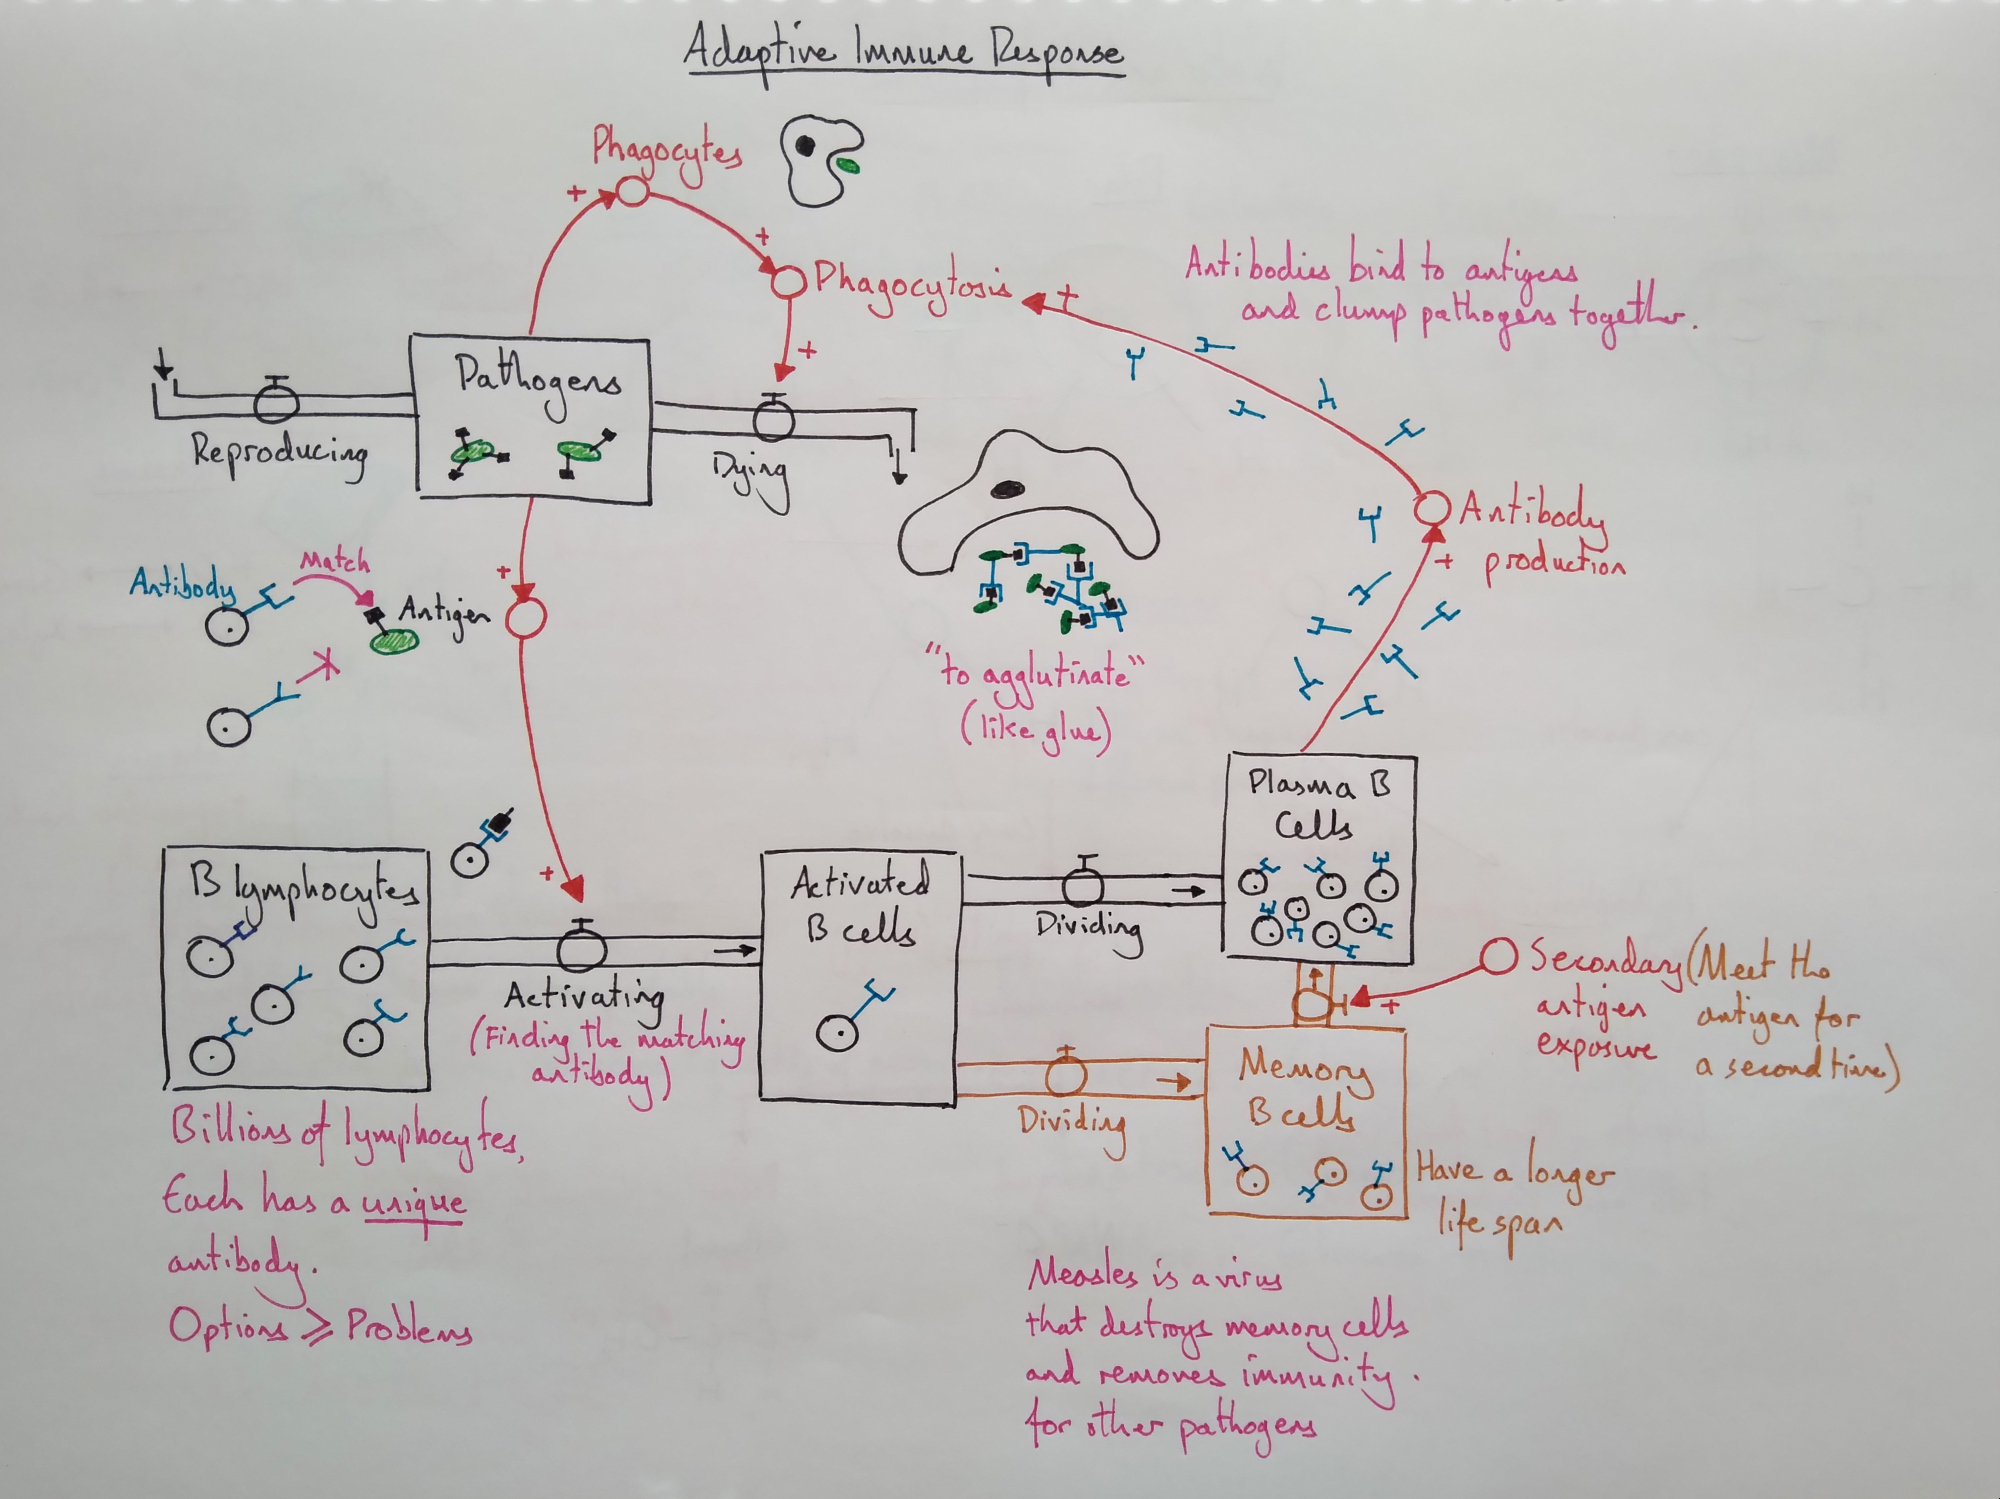 Adaptive Immune Response
Phagocytes
+
+
Phagocytosis
+
+
Antibodies bind to antigens
and clump pathogens together.
Pathogens
Reproducing
Dying
Antibody
production
+
Match
Antibody
Antigen
+
"to agglutinate"
(like glue)
Plasma B
Cells
B lymphocytes
+
Activated
B cells
Dividing
Activating
(Finding the matching
antibody)
Secondary
antigen
exposure
(Meet the
antigen for
a second time)
+
Memory
B cells
Dividing
Have a longer
life span
Billions of lymphocytes,
Each has a unique
antibody.
Options ⩾ Problems
Measles is a virus
that destroys memory cells
and removes immunity.
for other pathogens